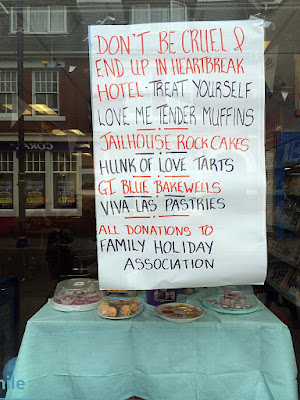 DON'T BE CRUEL &
END UP IN HEARTBREAK
HOTEL - TREAT YOURSELF
LOVE ME TENDER MUFFINS
JAILHOUSE ROCK CAKES
HUNK OF LOVE TARTS
GI BLUE BAKEWELLS
VIVA LAS PASTRIES
ALL DONATIONS TO
FAMILY HOLIDAY
ASSOCIATION